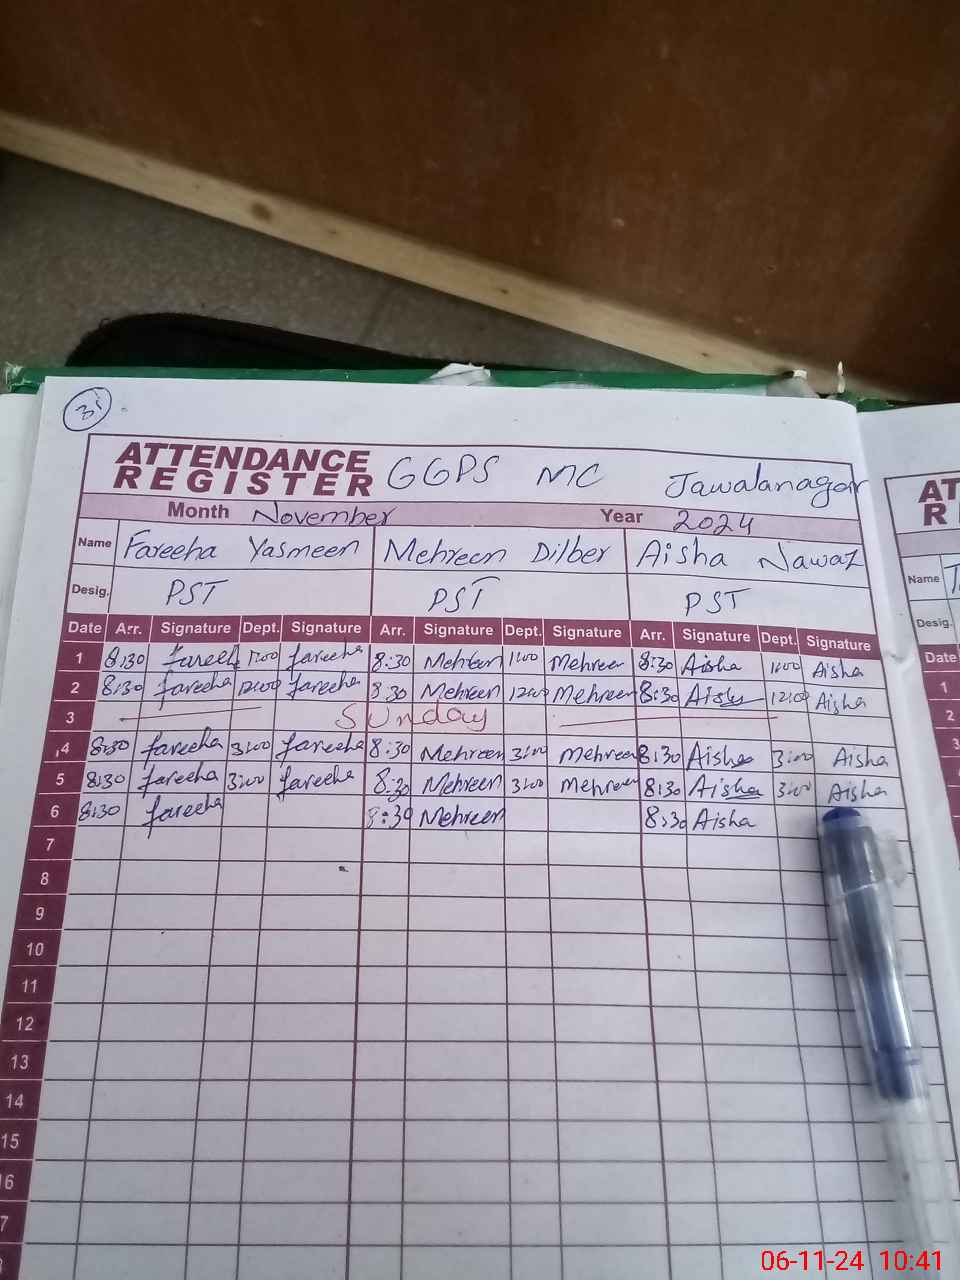 ATTENDANCE REGISTER GGPS MC Jawalanagar
Month November Year 2024
Name Fareeha Yasmeen Mehreen Dilber Aisha Nawaz
Desig. PST PST PST
Date Arr. Signature Dept. Signature Arr. Signature Dept. Signature Arr. Signature Dept. Signature
1 8:30 fareeha fareeha 8:30 Mehreen Mehreen 8:30 Aisha Aisha
2 8:30 fareeha 12:00 fareeha 8:30 Mehreen 12:00 Mehreen 8:30 Aisha 12:00 Aisha
3 Sunday
4 8:30 fareeha 3:00 fareeha 8:30 Mehreen 3:00 Mehreen 8:30 Aisha 3:00 Aisha
5 8:30 fareeha 3:00 fareeha 8:30 Mehreen 3:00 Mehreen 8:30 Aisha 3:00 Aisha
6 8:30 fareeha 8:30 Mehreen 8:30 Aisha
7
8
9
10
11
12
13
14
15
AT
R
Name
Desig.
Date
1
2
3
06-11-24 10:41